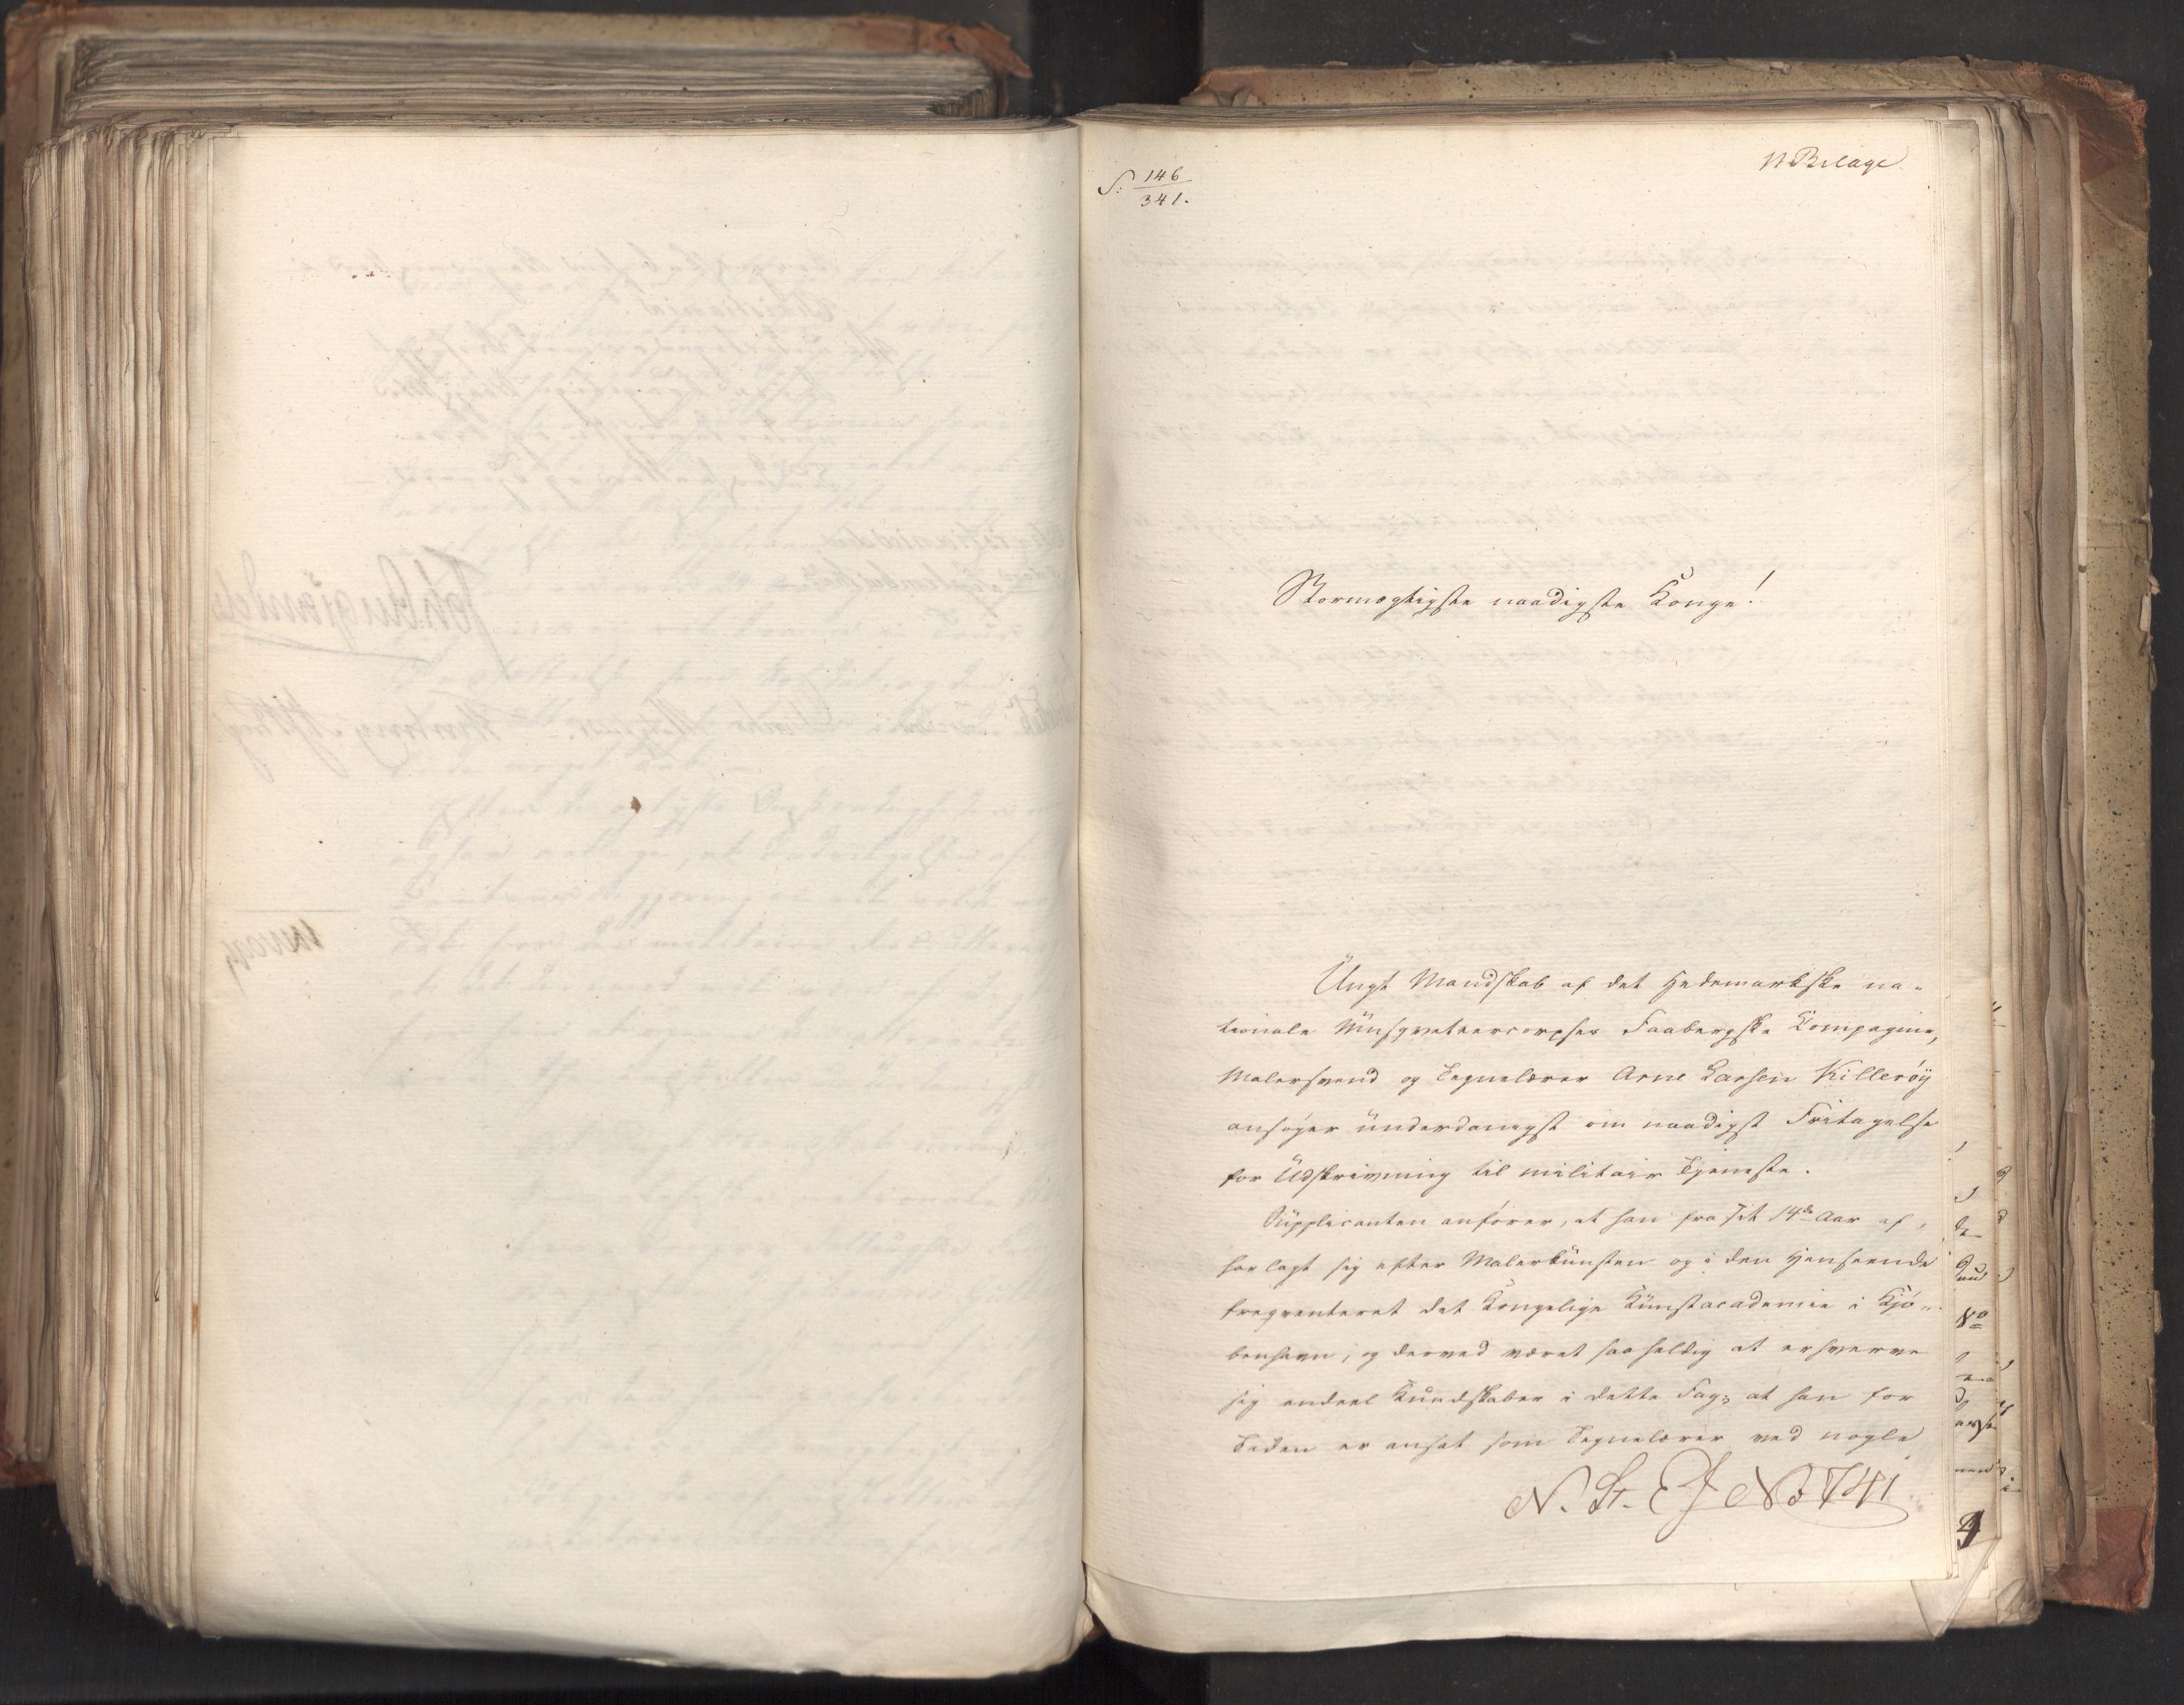 S: 146
341.
11 Bilage
Stormægtigste naadigste Konge!
Ungt Mandskab af det Hedemarkske na-
tionale Musqvetteercorpses Faabergske Compagnie,
Malersvend og Tegnelærer Arne Larsen Killeröÿ
ansøger underdanigst om naadigst Fritagelse
for Udskrivning til militair Tjeneste.
Supplicanten anfører, at han fra sit 14de Aar af,
har lagt sig efter Malerkunsten og i den Henseende
freqventeret det Kongelige Kunstacademie i Kjö-
benhavn, og derved været saa heldig at erhverve
sig endeel Kundskaber i dette Fag; at han for
Tiden er ansat som Tegnelærer ved nogle
N. St. E J No 741